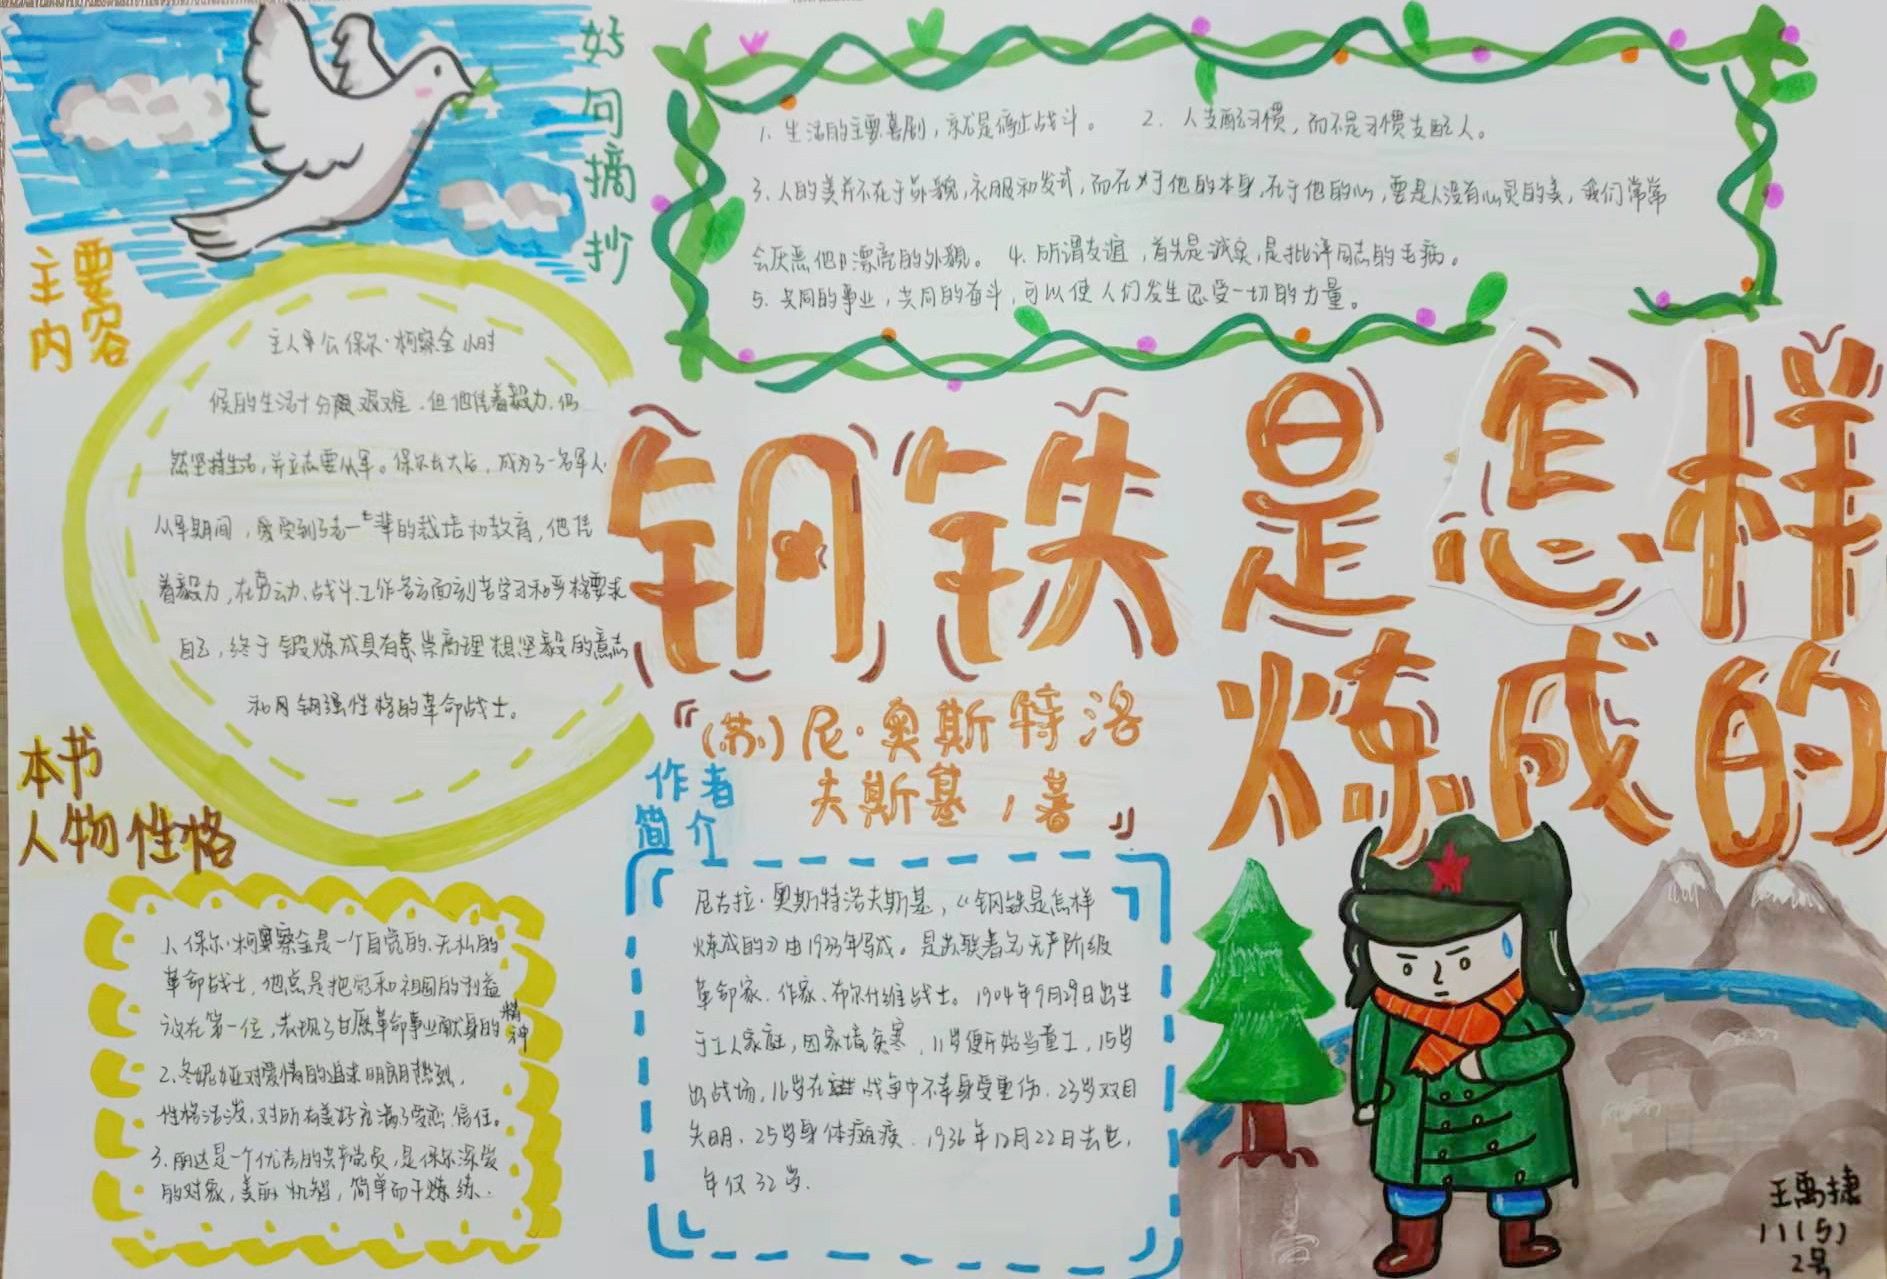 好句摘抄
1. 生活的主要喜剧，就是停止战斗。 2. 人支配习惯，而不是习惯支配人。
3. 人的美并不在于外貌，衣服和发式，而在于他的本身，在于他的心，要是人没有心灵的美，我们常常
会厌恶他漂亮的外貌。 4. 所谓友谊，首先是诚实，是批评同志的毛病。
5. 共同的事业，共同的奋斗，可以使人们发生忍受一切的力量。
主要
内容
主人公保尔·柯察金小时
候的生活十分艰难，但他凭着毅力，仍
然坚持生活，并立志要从军。保尔长大后，成为了一名军人，
从军期间，受到了老一辈的栽培和教育，他凭
着毅力，在劳动、战斗、工作各方面刻苦学习和严格要求
自己，终于锻炼成具有崇高理想坚毅的意志
和钢强性格的革命战士。
钢铁是怎样
炼成的
『（苏）尼·奥斯特洛
夫斯基，著』
本书
人物性格
1、保尔·柯察金是一个自觉的、无私的
革命战士，他总是把党和祖国的利益
放在第一位，表现了甘愿革命事业献身的精神
2、冬妮娅对爱情的追求明朗热烈，
性格活泼，对所有美好充满了爱恋、信任。
3、丽达是一个优秀的共产党员，是保尔深爱
的对象，美丽、机智，简单而干练。
作者
简介
尼古拉·奥斯特洛夫斯基，《钢铁是怎样
炼成的》由1933年写成。是苏联著名无产阶级
革命家、作家、布尔什维战士。1904年9月29日出生
于工人家庭，因家境贫寒，11岁便开始当童工，15岁
出战场，16岁在战争中不幸身受重伤，23岁双目
失明，25岁身体瘫痪，1936年12月22日去世，
年仅32岁。
王禹捷
11(5)
2号